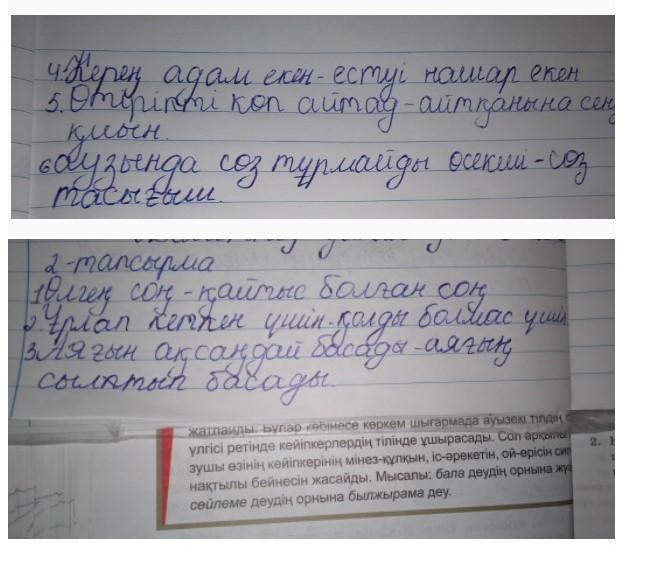 4. Керең адам екен-естуі нашар екен
5. Өтірікті көп айтад-айтқанына сену
қиын.
6 аузында сөз тұрмайды өсекші-сөз
тасығыш.
2-тапсырма
1 Өлген соң-қайтыс болған соң
2. Ұрлап кеткен үшін-қолды болмас үшін
3. Аяғын ақсаңдай басады-аяғын
сылтып басады.
жатпайды. Бұлар көбінесе көркем шығармада ауызекі тілдің
үлгісі ретінде кейіпкерлердің тілінде ұшырасады. Сол арқылы
зушы өзінің кейіпкерінің мінез-құлқын, іс-әрекетін, ой-өрісін сип
нақтылы бейнесін жасайды. Мысалы: бала деудің орнына жү
сөйлеме деудің орнына былжырама деу.
2.